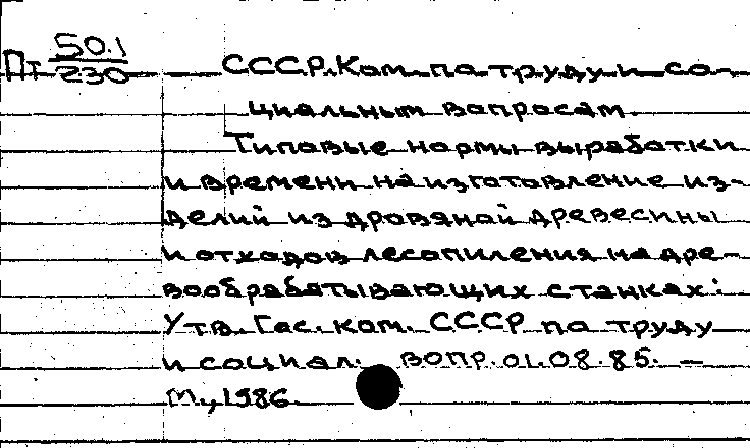 Пт 50.1/230 СССР. Ком. по труду и со-
циальным вопросам.
Типовые нормы выработки
и времени на изготовление из-
делий из дровяной древесины
и отходов лесопиления на дре-
вообрабатывающих станках:
Утв. Гос. ком. СССР по труду
и социал. вопр. 01.08.85. —
М., 1986.